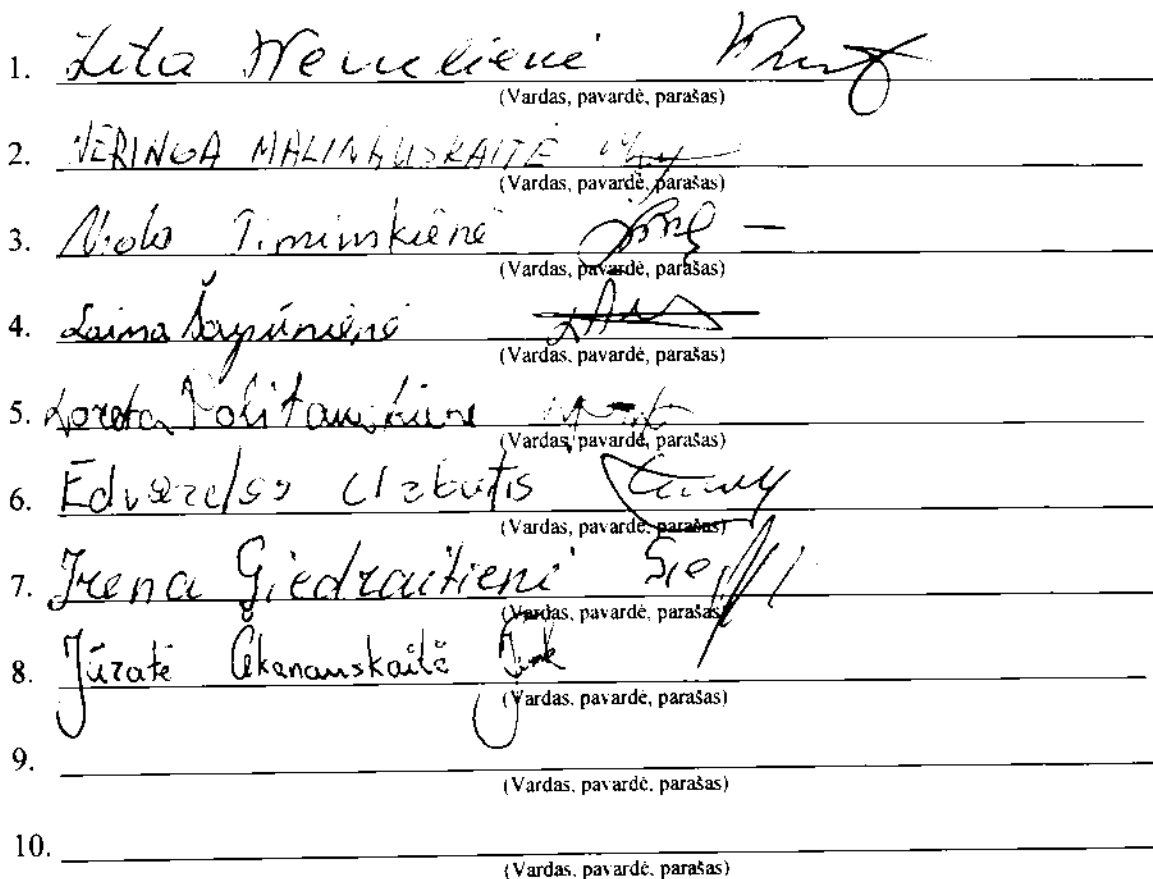 1. Zita
(Vardas, pavardė, parašas)
2. NERINGA MALINAUSKAITĖ
(Vardas, pavardė, parašas)
3. Timinskienė
(Vardas, pavardė, parašas)
4. Laima Šapūnienė
(Vardas, pavardė, parašas)
5. Loreta
(Vardas, pavardė, parašas)
6. Edvardas
(Vardas, pavardė, parašas)
7. Irena Giedraitienė
(Vardas, pavardė, parašas)
8. Jūratė Čekanauskaitė
(Vardas, pavardė, parašas)
9.
(Vardas, pavardė, parašas)
10.
(Vardas, pavardė, parašas)